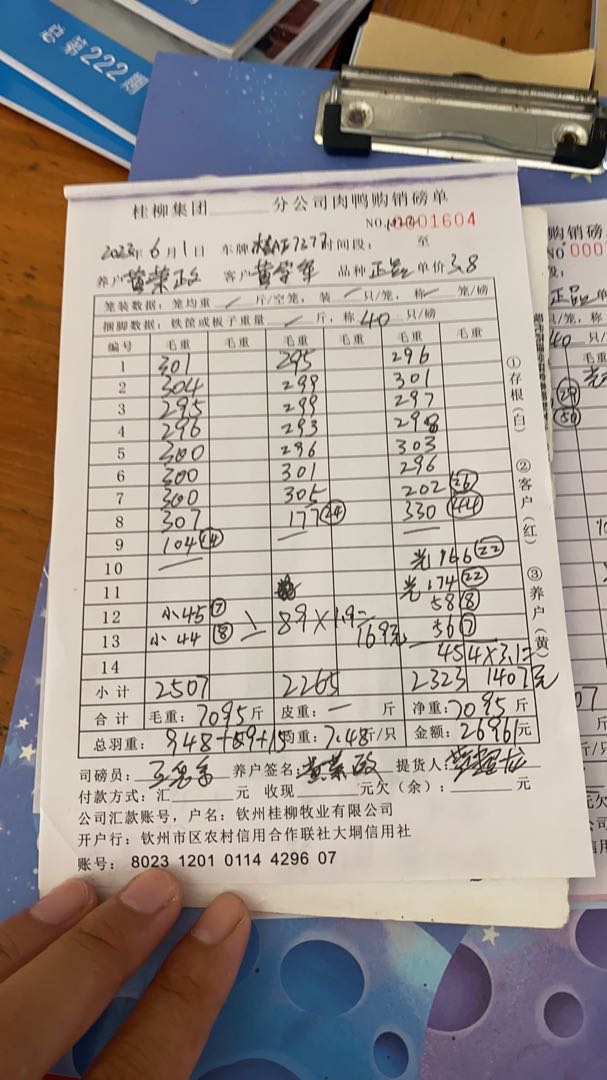 总第222期
桂柳集团______分公司肉鸭购销磅单
NO.0001604
2023年6月1日 车牌 7277 时间段: 至
养户 黄荣政 客户 品种 正品 单价 3.8
笼装数据:笼均重 / 斤/空笼,装 / 只/笼,称 / 笼/磅
捆脚数据:铁筐或板子重量 / 斤,称 40 只/磅
编号 毛重 毛重 毛重 毛重 毛重 毛重
1 301 295 296
2 304 299 301
3 295 299 297
4 296 293 298
5 300 296 303
6 300 301 296
7 300 305 202 (26)
8 307 177 (24) 330 (44)
9 104 (14)
10 光 166 (22)
11 光 174 (22)
12 小 45 (7) 89×1.9= 58 (8)
13 小 44 (8) 169元 56 (7)
14 454×3.1=
小计 2507 2265 2323 1407元
合计 毛重:7095斤 皮重:— 斤 净重:7095斤
总羽重: 948+59+15 均重:7.48斤/只 金额:26961元
司磅员: 养户签名:黄荣政 提货人:
付款方式:汇______元 收现______元欠(余):______元
公司汇款账号,户名:钦州桂柳牧业有限公司
开户行:钦州市区农村信用合作联社大垌信用社
账号: 8023 1201 0114 4296 07
①存根(白) ②客户(红) ③养户(黄)
购销磅
NO 000
正品 单